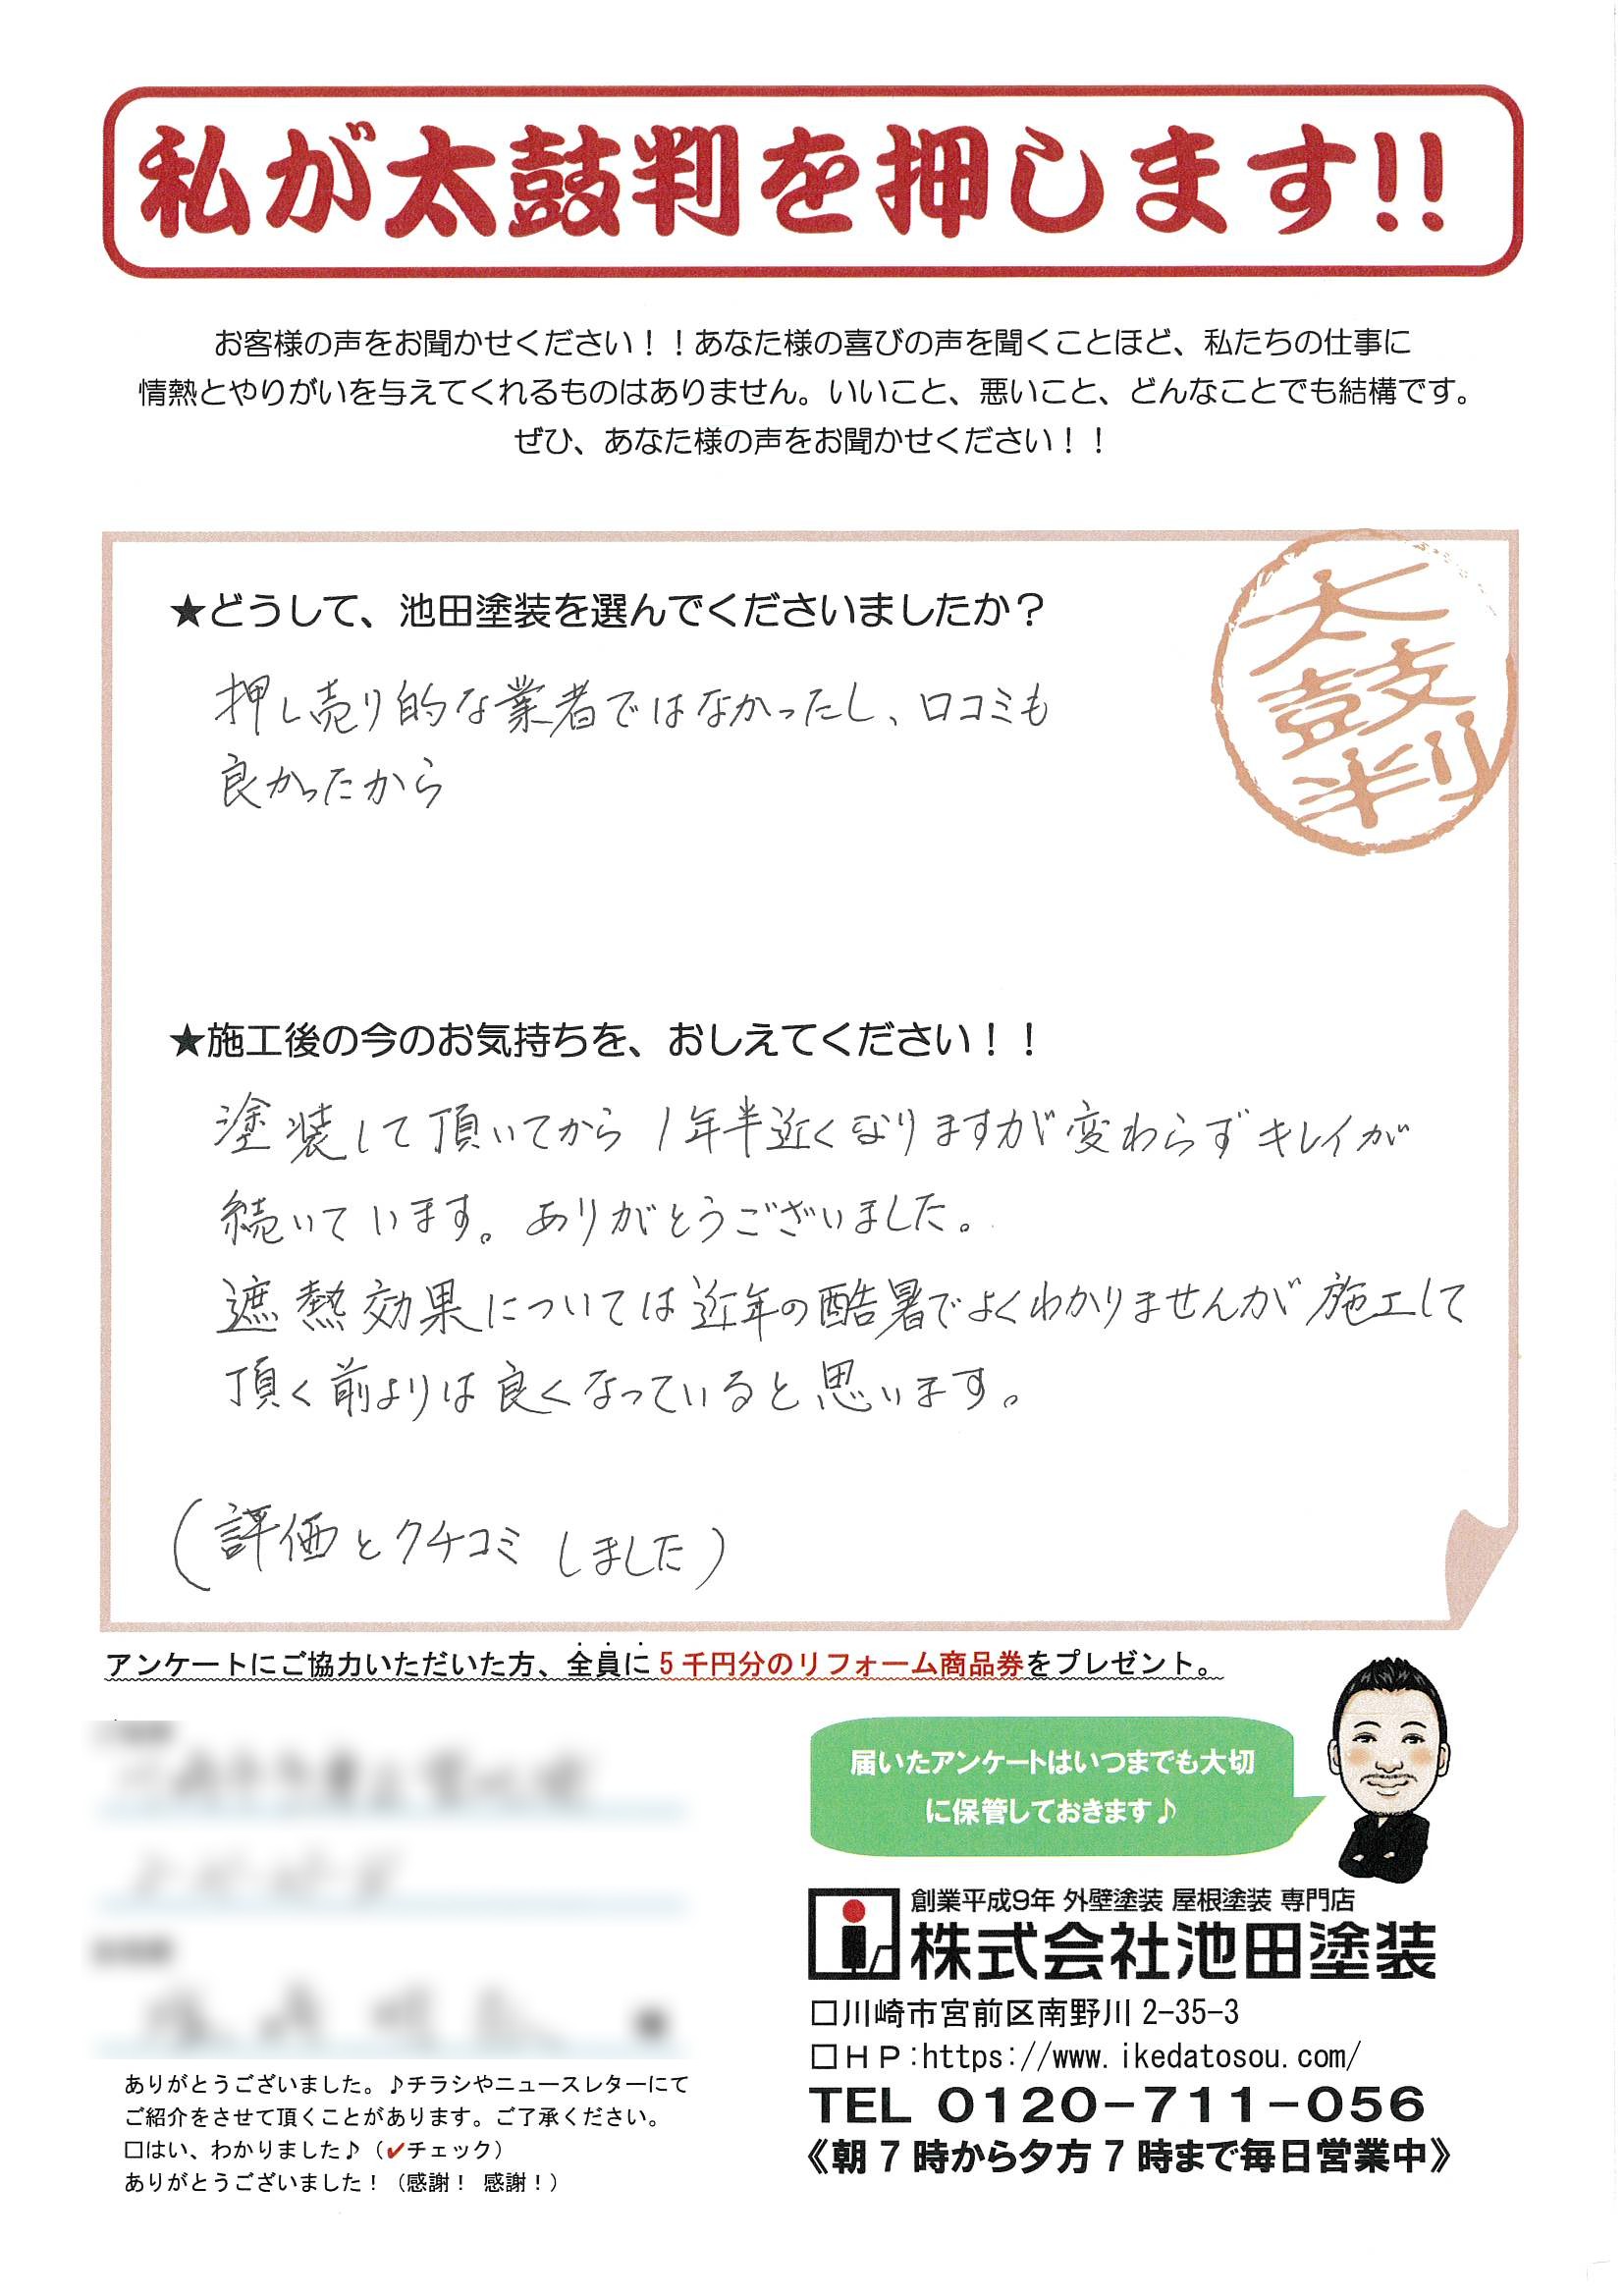 私が太鼓判を押します!!
お客様の声をお聞かせください！！あなた様の喜びの声を聞くことほど、私たちの仕事に
情熱とやりがいを与えてくれるものはありません。いいこと、悪いこと、どんなことでも結構です。
ぜひ、あなた様の声をお聞かせください！！
太鼓判
★どうして、池田塗装を選んでくださいましたか？
押し売り的な業者ではなかったし、口コミも
良かったから
★施工後の今のお気持ちを、おしえてください！！
塗装して頂いてから1年半近くなりますが変わらずキレイが
続いています。ありがとうございました。
遮熱効果については近年の酷暑でよくわかりませんが施工して
頂く前よりは良くなっていると思います。
（評価とクチコミしました）
アンケートにご協力いただいた方、全員に5千円分のリフォーム商品券をプレゼント。
届いたアンケートはいつまでも大切
に保管しておきます♪
創業平成9年 外壁塗装 屋根塗装 専門店
株式会社池田塗装
□川崎市宮前区南野川2-35-3
□ＨＰ:https://www.ikedatosou.com/
TEL 0120-711-056
《朝7時から夕方7時まで毎日営業中》
ありがとうございました。♪チラシやニュースレターにて
ご紹介をさせて頂くことがあります。ご了承ください。
□はい、わかりました♪（✔チェック）
ありがとうございました！（感謝！ 感謝！）